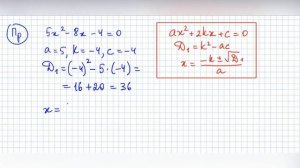 Пр
5x² - 8x - 4 = 0
a = 5, k = -4, c = -4
D₁ = (-4)² - 5·(-4) =
= 16 + 20 = 36
x =
ax² + 2kx + c = 0
D₁ = k² - ac
x = (-k ± √D₁)/a